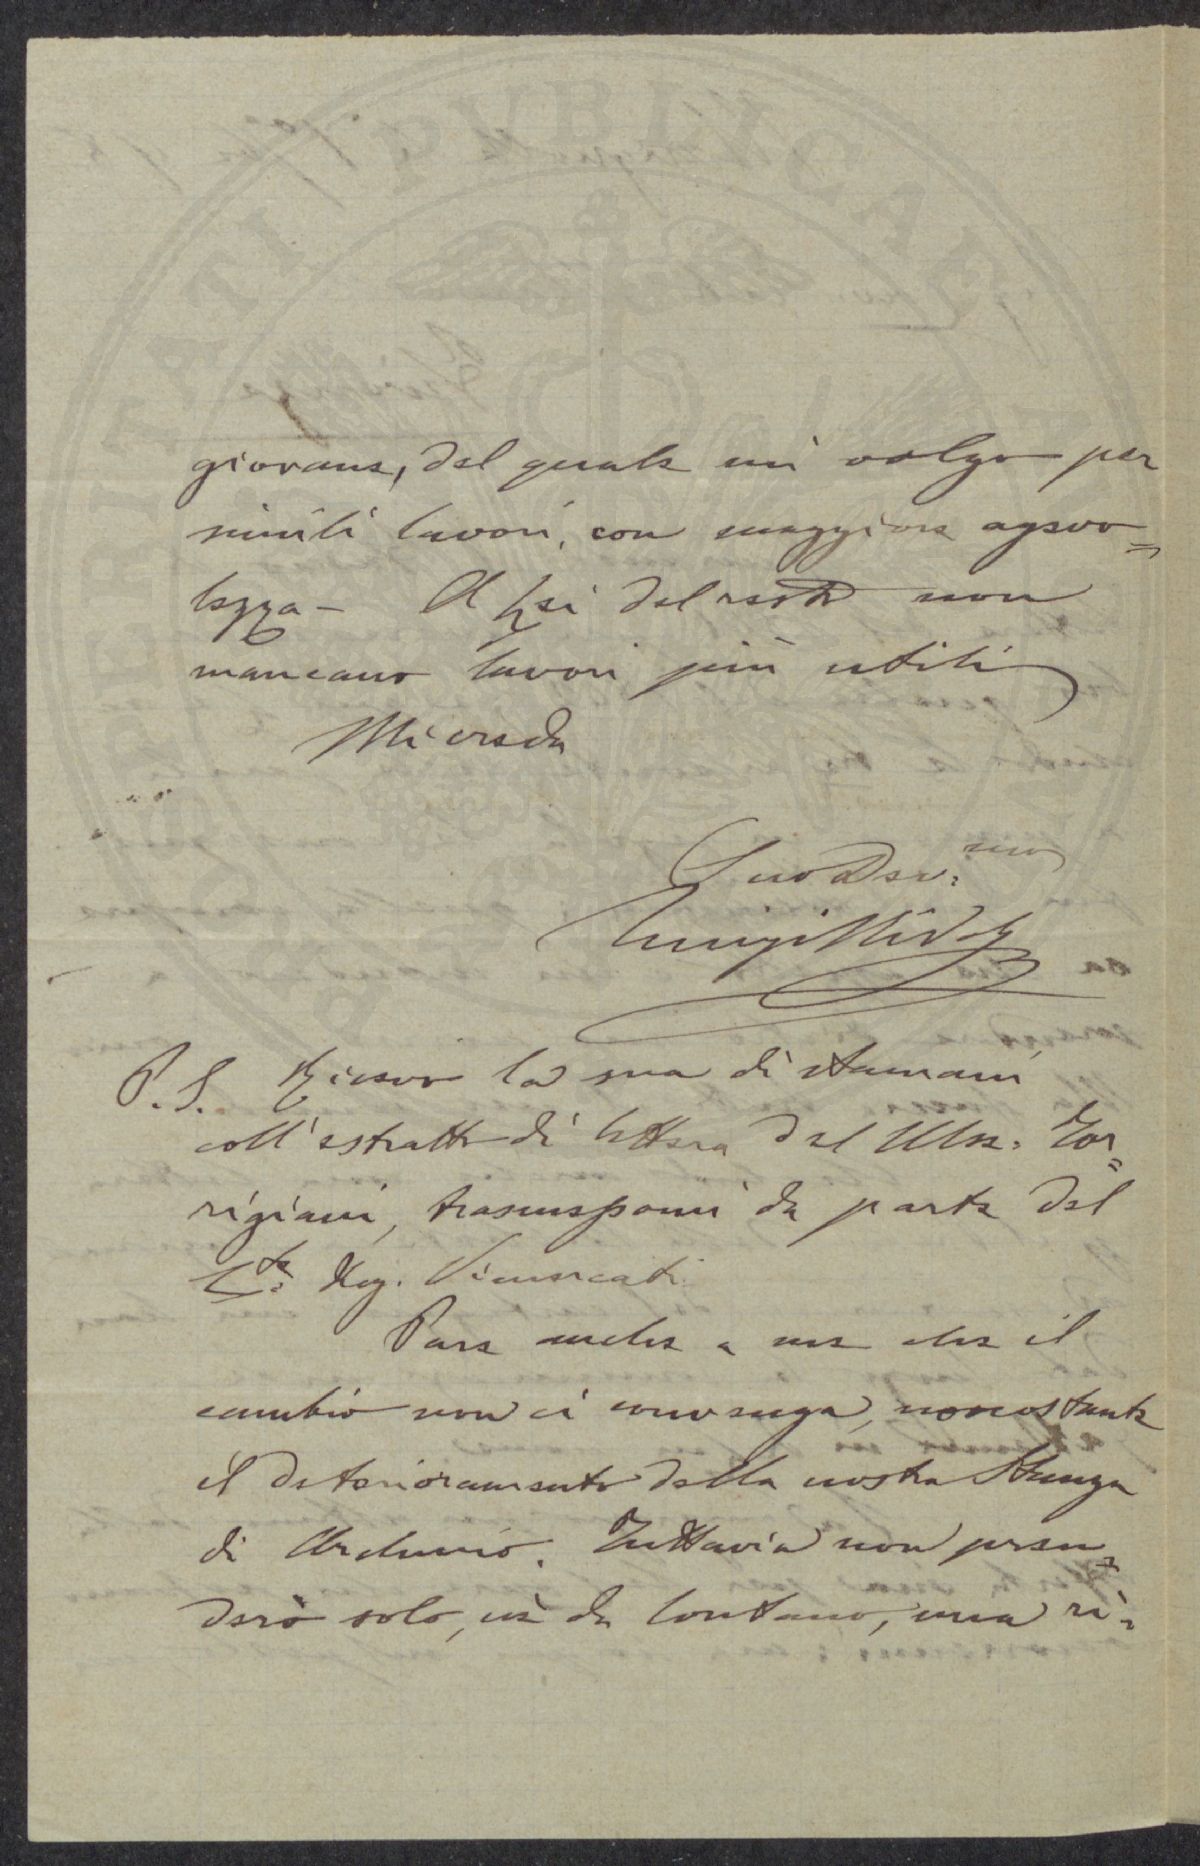 giovane, del quale mi valgo per
simili lavori, con maggiore agevo=
lezza — A Lei del resto non
mancano lavori più utili
Mi creda
Suo Dev.mo
Luigi
P.S. Ricevo la sua di stamani
coll'estratto di lettera del Mse. Tor=
rigiani, trasmessomi da parte del
Cte. Rag. Vimercati
Pare anche a me che il
cambio non ci convenga, nonostante
il deterioramento della nostra Stanza
di Arduino. Tuttavia non pren=
derò solo, nè da lontano, una ri=